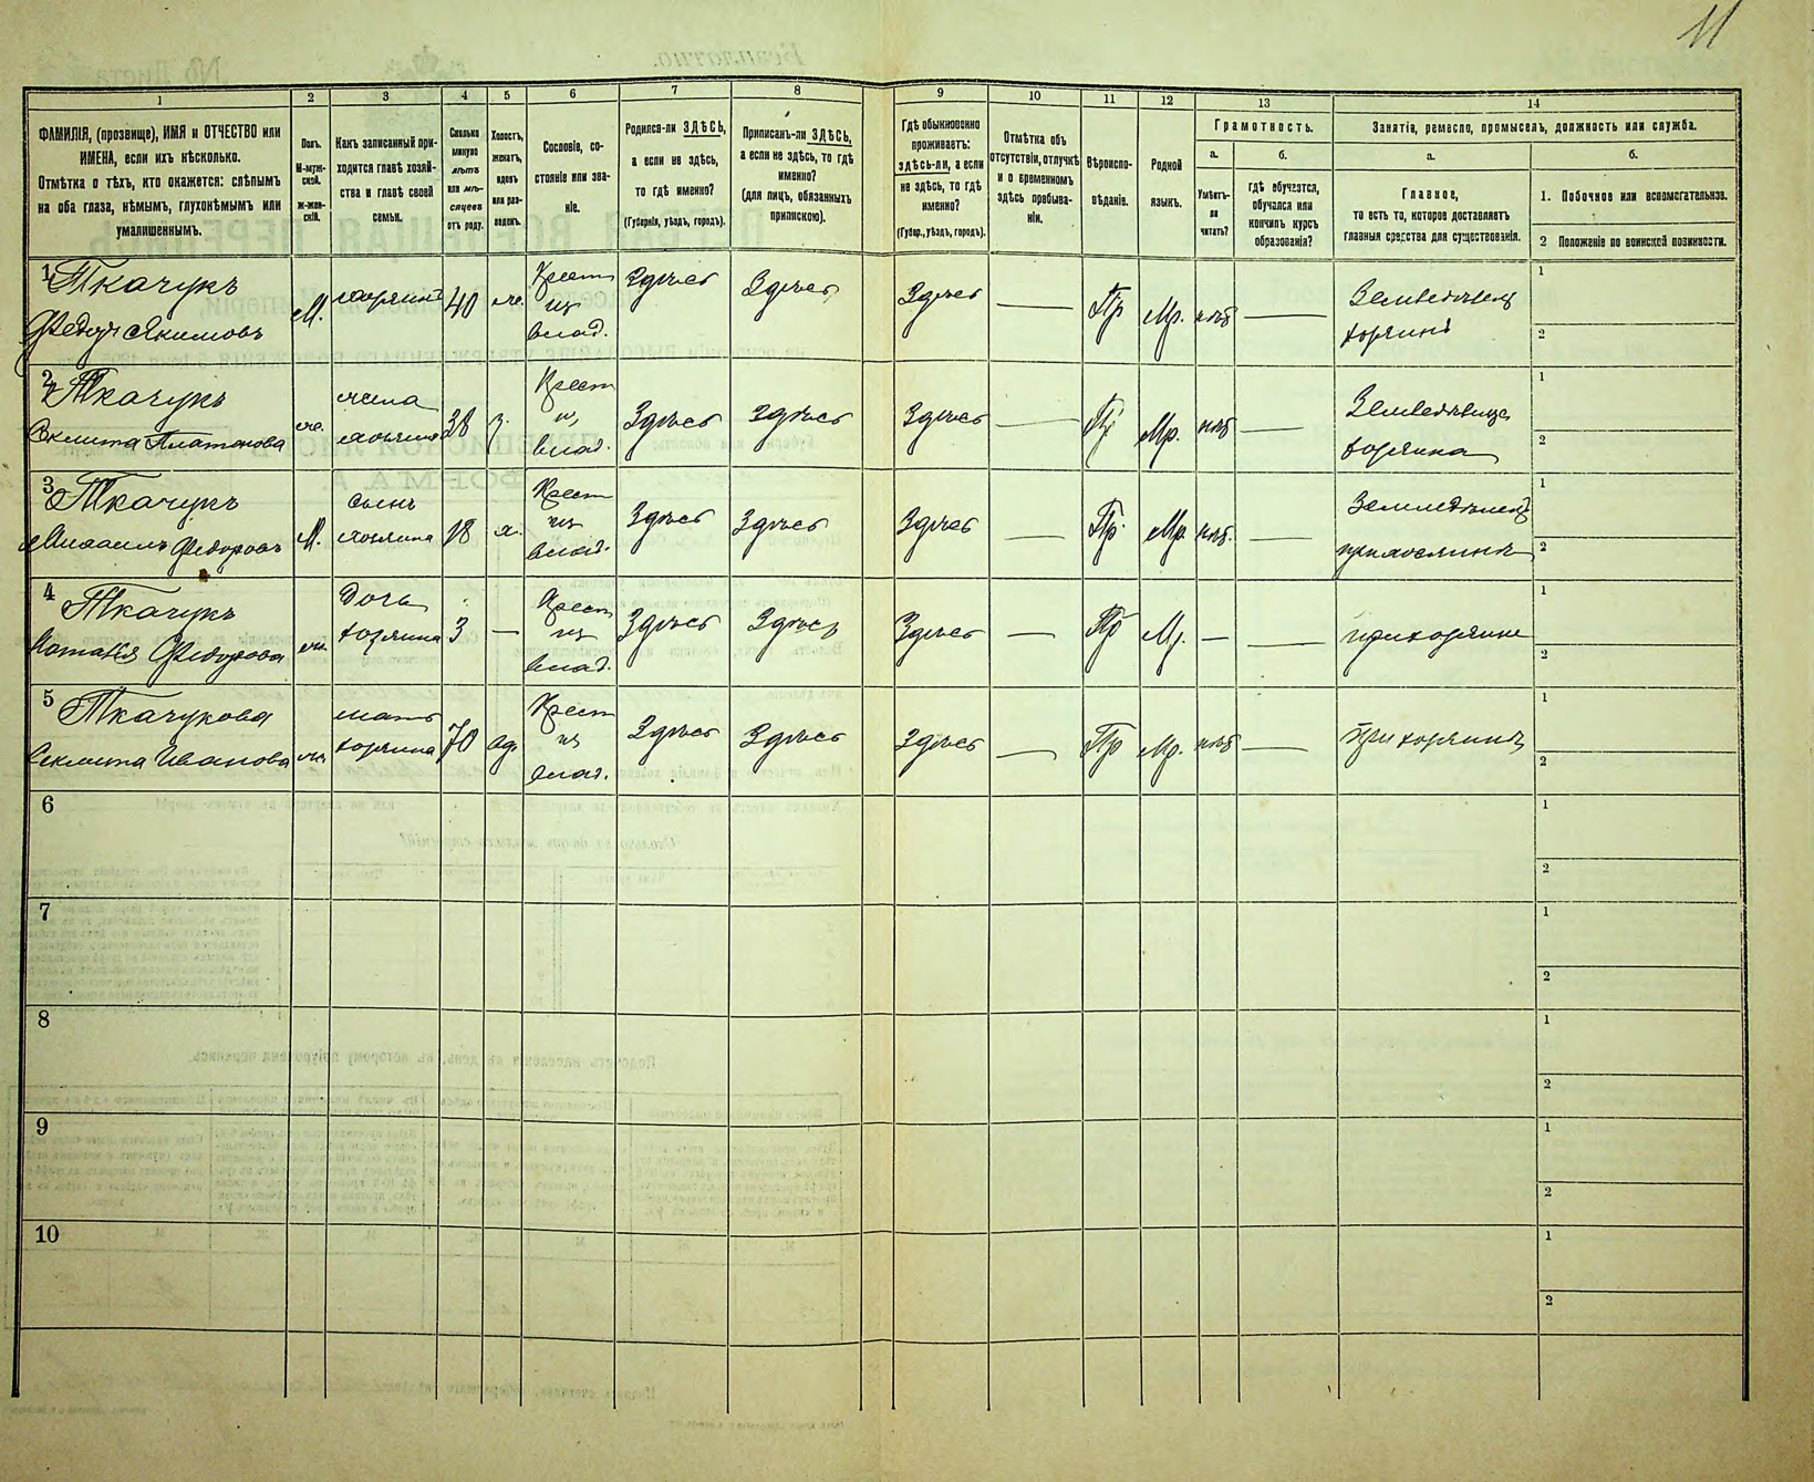 11
1
2
3
4
5
6
7
8
9
10
11
12
13
14
ФАМИЛІЯ, (прозвище), ИМЯ и ОТЧЕСТВО или
ИМЕНА, если ихъ нѣсколько.
Отмѣтка о тѣхъ, кто окажется: слѣпымъ
на оба глаза, нѣмымъ, глухонѣмымъ или
умалишеннымъ.
Полъ.
М-муж-
ской.
Ж-жен-
скій.
Какъ записанный при-
ходится главѣ хозяй-
ства и главѣ своей
семьи.
Сколько
минуло
лѣтъ
или мѣ-
сяцевъ
отъ роду.
Холостъ,
женатъ,
вдовъ
или раз-
веденъ.
Сословіе, со-
стояніе или зва-
ніе.
Родился-ли ЗДѢСЬ,
а если не здѣсь,
то гдѣ именно?
(Губернія, уѣздъ, городъ).
Приписанъ-ли ЗДѢСЬ,
а если не здѣсь, то гдѣ
именно?
(для лицъ, обязанныхъ
припискою).
Гдѣ обыкновенно
проживаетъ:
здѣсь-ли, а если
не здѣсь, то гдѣ
именно?
(Губер., уѣздъ, городъ).
Отмѣтка объ
отсутствіи, отлучкѣ
и о временномъ
здѣсь пребыва-
ніи.
Вѣроиспо-
вѣданіе.
Родной
языкъ.
Грамотность.
а.
Умѣетъ-
ли
читать?
б.
гдѣ обучается,
обучался или
кончилъ курсъ
образованія?
Занятіе, ремесло, промыселъ, должность или служба.
а.
Главное,
то есть то, которое доставляетъ
главныя средства для существованія.
б.
1. Побочное или вспомогательное.
2 Положеніе по воинской повинности.
1 Ткачукъ
Федоръ Якимовъ
М.
хозяинъ
40
же.
Крест
из
влад.
Здѣсь
Здѣсь
Здѣсь
—
Пр
Мр.
нѣтъ
—
Земледѣлецъ
хозяинъ
1
2
2 Ткачукъ
Секлита Платонова
ж.
жена
хозяина
38
з.
Крест
из
влад.
Здѣсь
Здѣсь
Здѣсь
—
Пр
Мр.
нѣтъ
—
хозяина
1
2
3 Ткачукъ
Михаилъ Федоровъ
М.
сынъ
хозяина
18
х.
Крест
из
влад.
Здѣсь
Здѣсь
Здѣсь
—
Пр.
Мр.
нѣтъ.
—
Земледѣлецъ
при хозяинѣ
1
2
4 Ткачукъ
Наталія Федорова
ж.
дочь
хозяина
3
—
Крест
из
влад.
Здѣсь
Здѣсь
Здѣсь
—
Пр
Мр.
—
—
при хозяинѣ
1
2
5 Ткачукова
Секлита Иванова
ж.
мать
хозяина
70
вд.
Крест
из
влад.
Здѣсь
Здѣсь
Здѣсь
—
Пр
Мр.
нѣтъ
—
при хозяинѣ
1
2
6
1
2
7
1
2
8
1
2
9
1
2
10
1
2